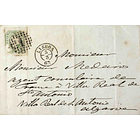 LISBOA
Monsieur
Monsieur Medeiros
Agent consulaire de
France à Villa Real de
St Antonio
Villa Real de St Antonio
Algarve